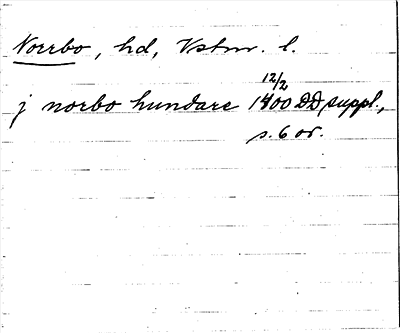 Norrbo, hd, Vstm. l.
12/2
j norbo hundare 1400 DD, suppl.,
s. 6 or.